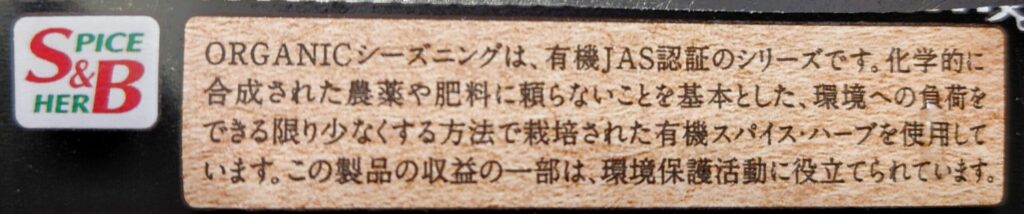 SPICE
&
HERB
ORGANICシーズニングは、有機JAS認証のシリーズです。化学的に
合成された農薬や肥料に頼らないことを基本とした、環境への負荷を
できる限り少なくする方法で栽培された有機スパイス・ハーブを使用して
います。この製品の収益の一部は、環境保護活動に役立てられています。